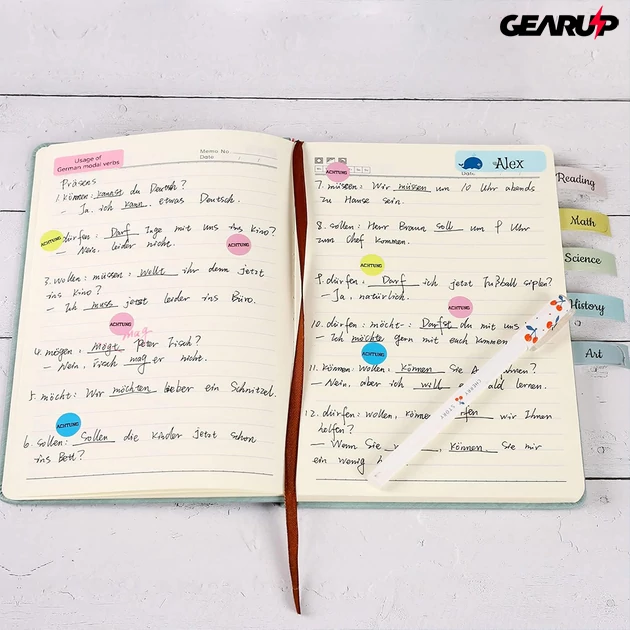 GEARUP
Usage of
German modal verbs
Memo No.
Date / /
Präsens
1. können: kannst du Deutsch?
– Ja, ich kann etwas Deutsch.
ACHTUNG
dürfen: Darf Inge mit uns ins Kino?
– Nein, leider nicht.
ACHTUNG
3. wollen: müssen: Wollt ihr denn jetzt
ins Kino?
– Ich muss jetzt leider ins Büro.
ACHTUNG
mag
4. mögen, Mögt Peter Fisch?
– Nein, Fisch mag er nicht.
5. möcht: Wir möchten lieber ein Schnitzel.
ACHTUNG
6. sollen: Sollen die Kinder jetzt schon
ins Bett?
ACHTUNG
Date
Alex
7. müssen: Wir müssen um 10 Uhr abends
zu Hause sein.
8. sollen: Herr Braun soll um 9 Uhr
zum Chef kommen.
ACHTUNG
9. dürfen: Darf ich jetzt Fußball spielen?
– Ja, natürlich.
ACHTUNG
10. dürfen: möcht-: Darfst du mit uns
– Ich möchte gern mit euch kommen
ACHTUNG
11. können: wollen: Können Sie
– Nein, aber ich will bald lernen.
12. dürfen: wollen, wir Ihnen
helfen?
– Wenn Sie können Sie mir
ein wenig
CHERRY STORY
Reading
Math
Science
History
Art